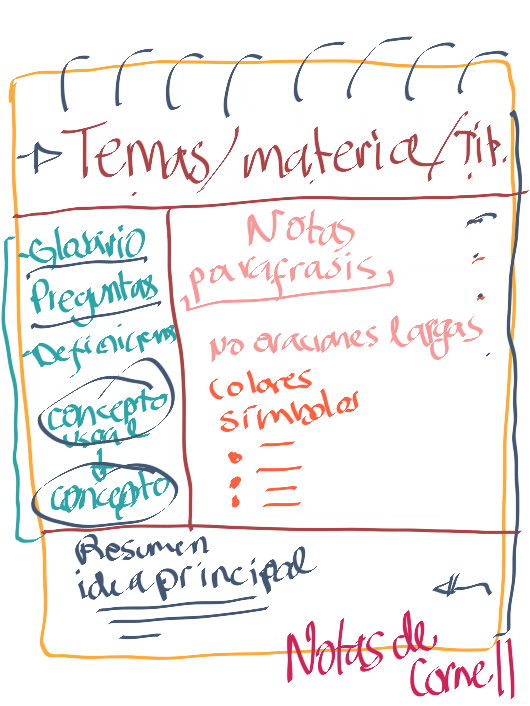 Temas/materia/Tit.
Glosario
Preguntas
Definiciones
concepto
concepto
Notas
parafrasis
No oraciones largas
Colores
símbolos
Resumen
idea principal
Notas de
Cornell